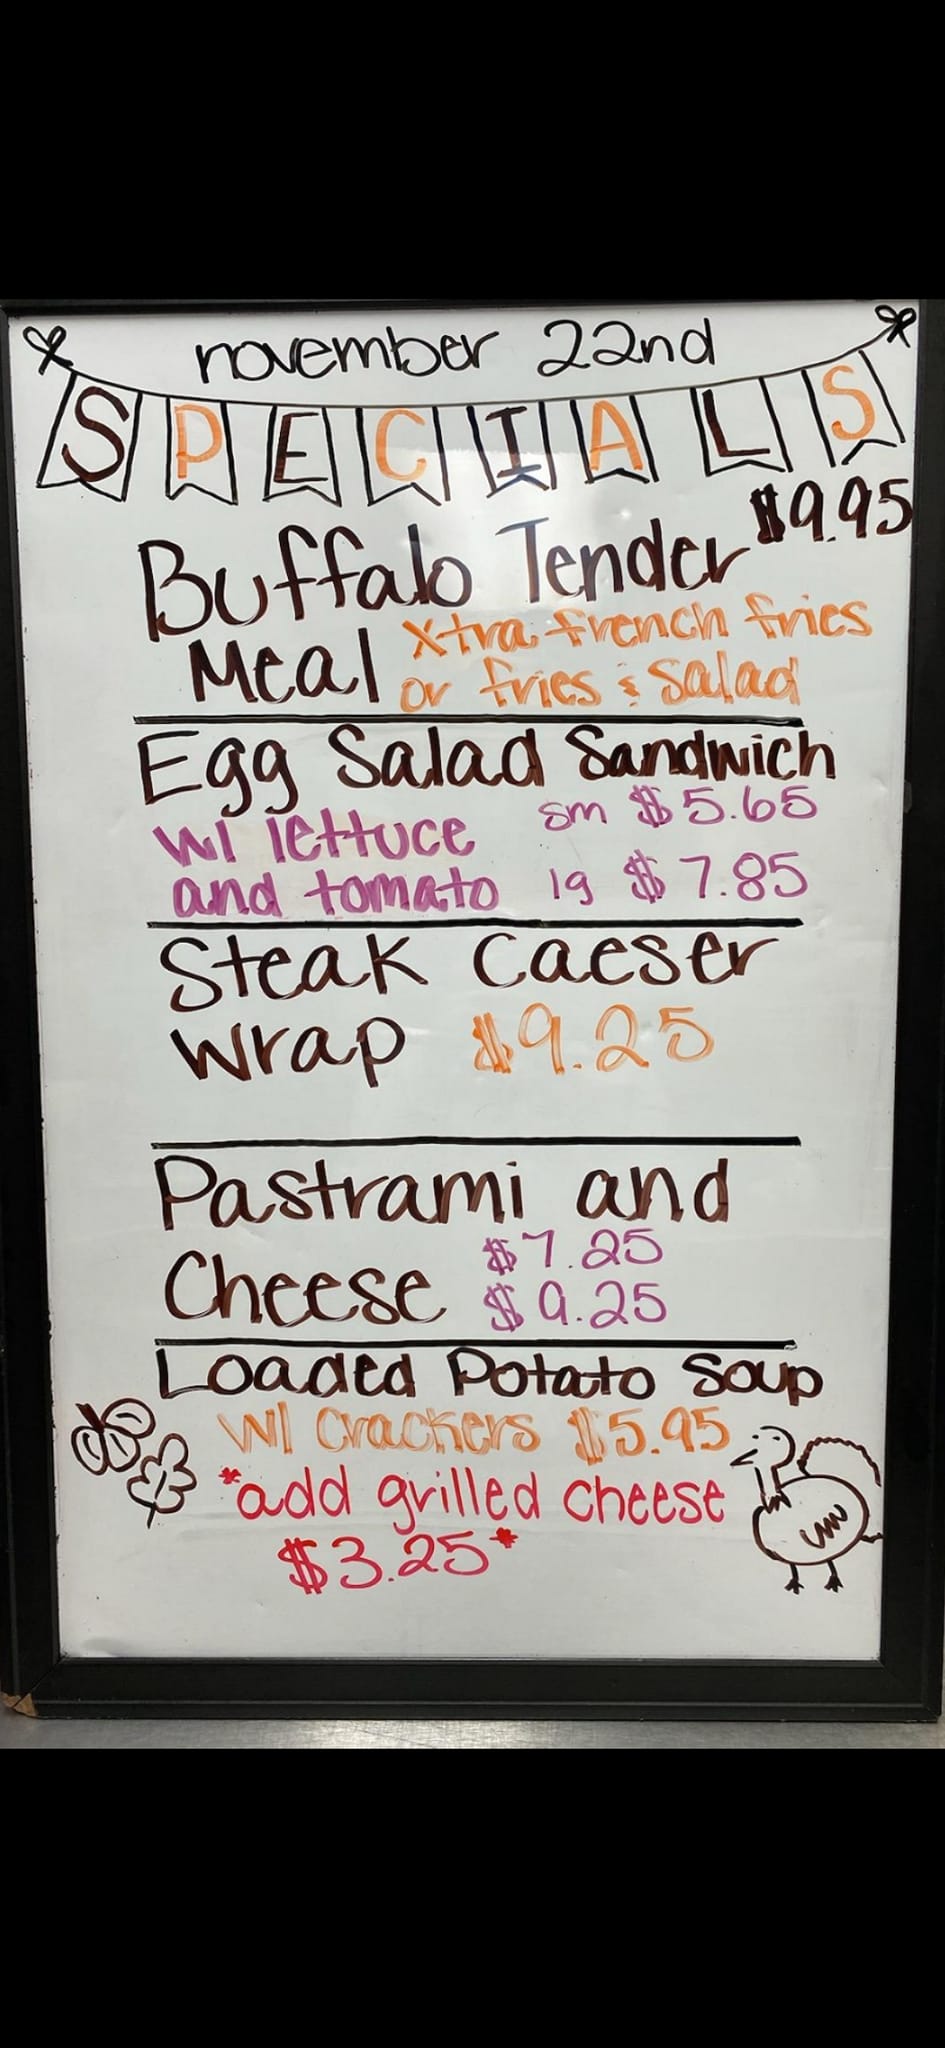 november 22nd
SPECIALS
$9.95
Buffalo Tender
Meal
Xtra french fries
or fries & Salad
Egg Salad Sandwich
w/ lettuce sm $5.65
and tomato lg $7.85
Steak Caeser
Wrap $9.25
Pastrami and
Cheese $7.25
$9.25
Loaded Potato Soup
w/ Crackers $5.95
*add grilled cheese
$3.25*